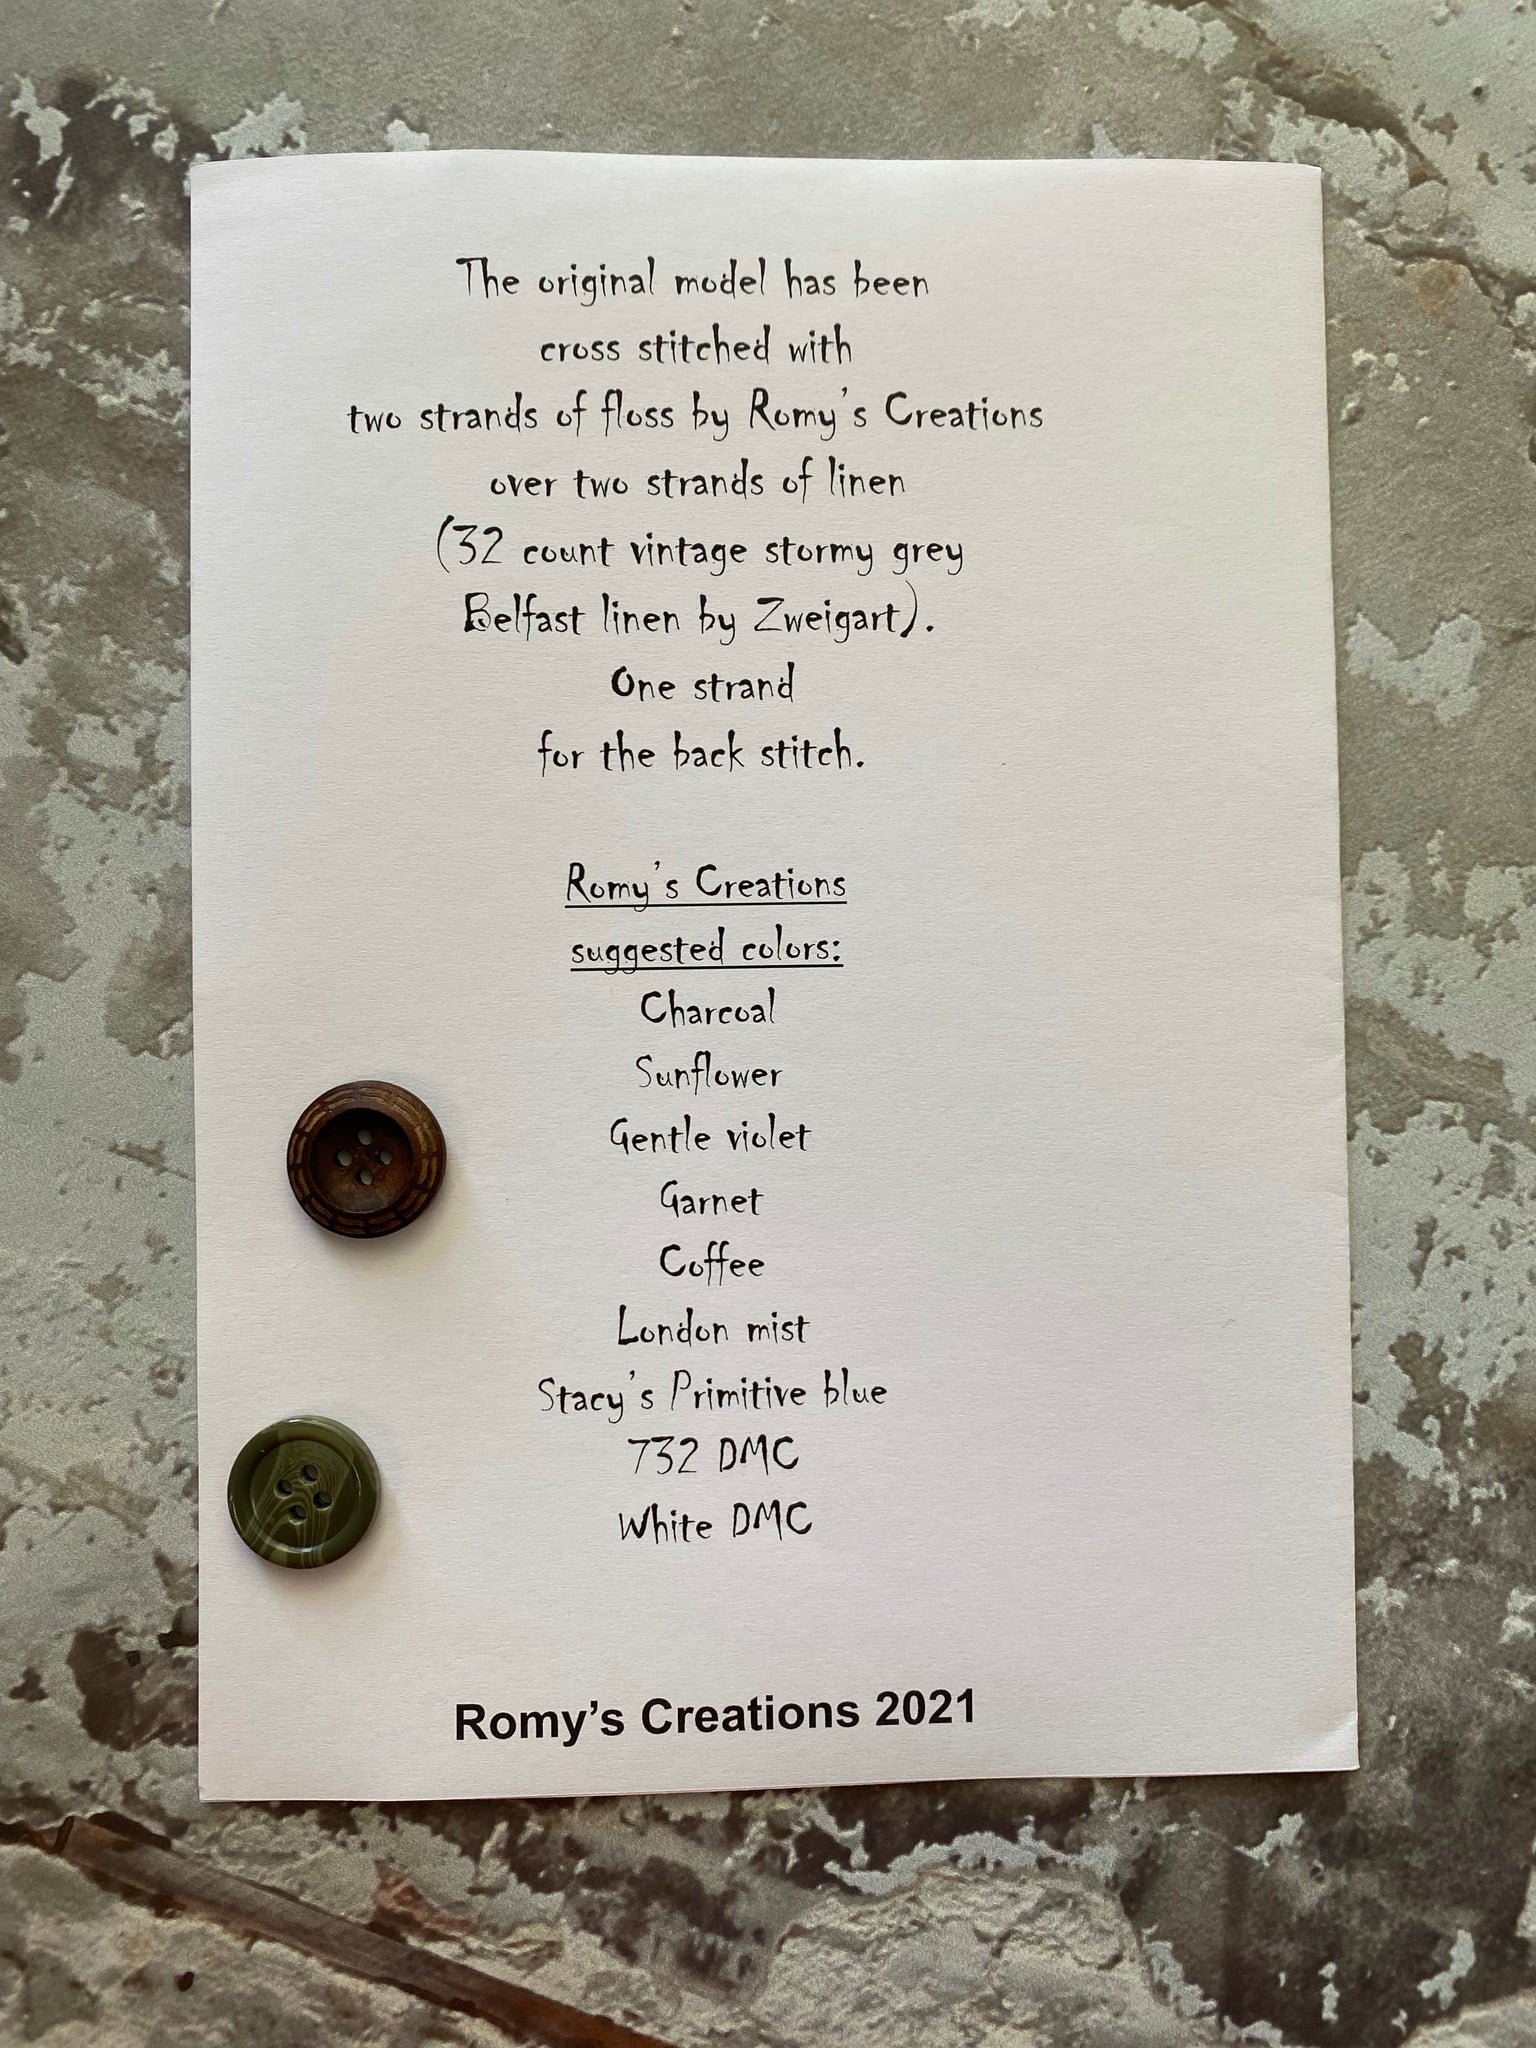 The original model has been
cross stitched with
two strands of floss by Romy's Creations
over two strands of linen
(32 count vintage stormy grey
Belfast linen by Zweigart).
One strand
for the back stitch.
Romy's Creations
suggested colors:
Charcoal
Sunflower
Gentle violet
Garnet
Coffee
London mist
Stacy's Primitive blue
732 DMC
White DMC
Romy's Creations 2021